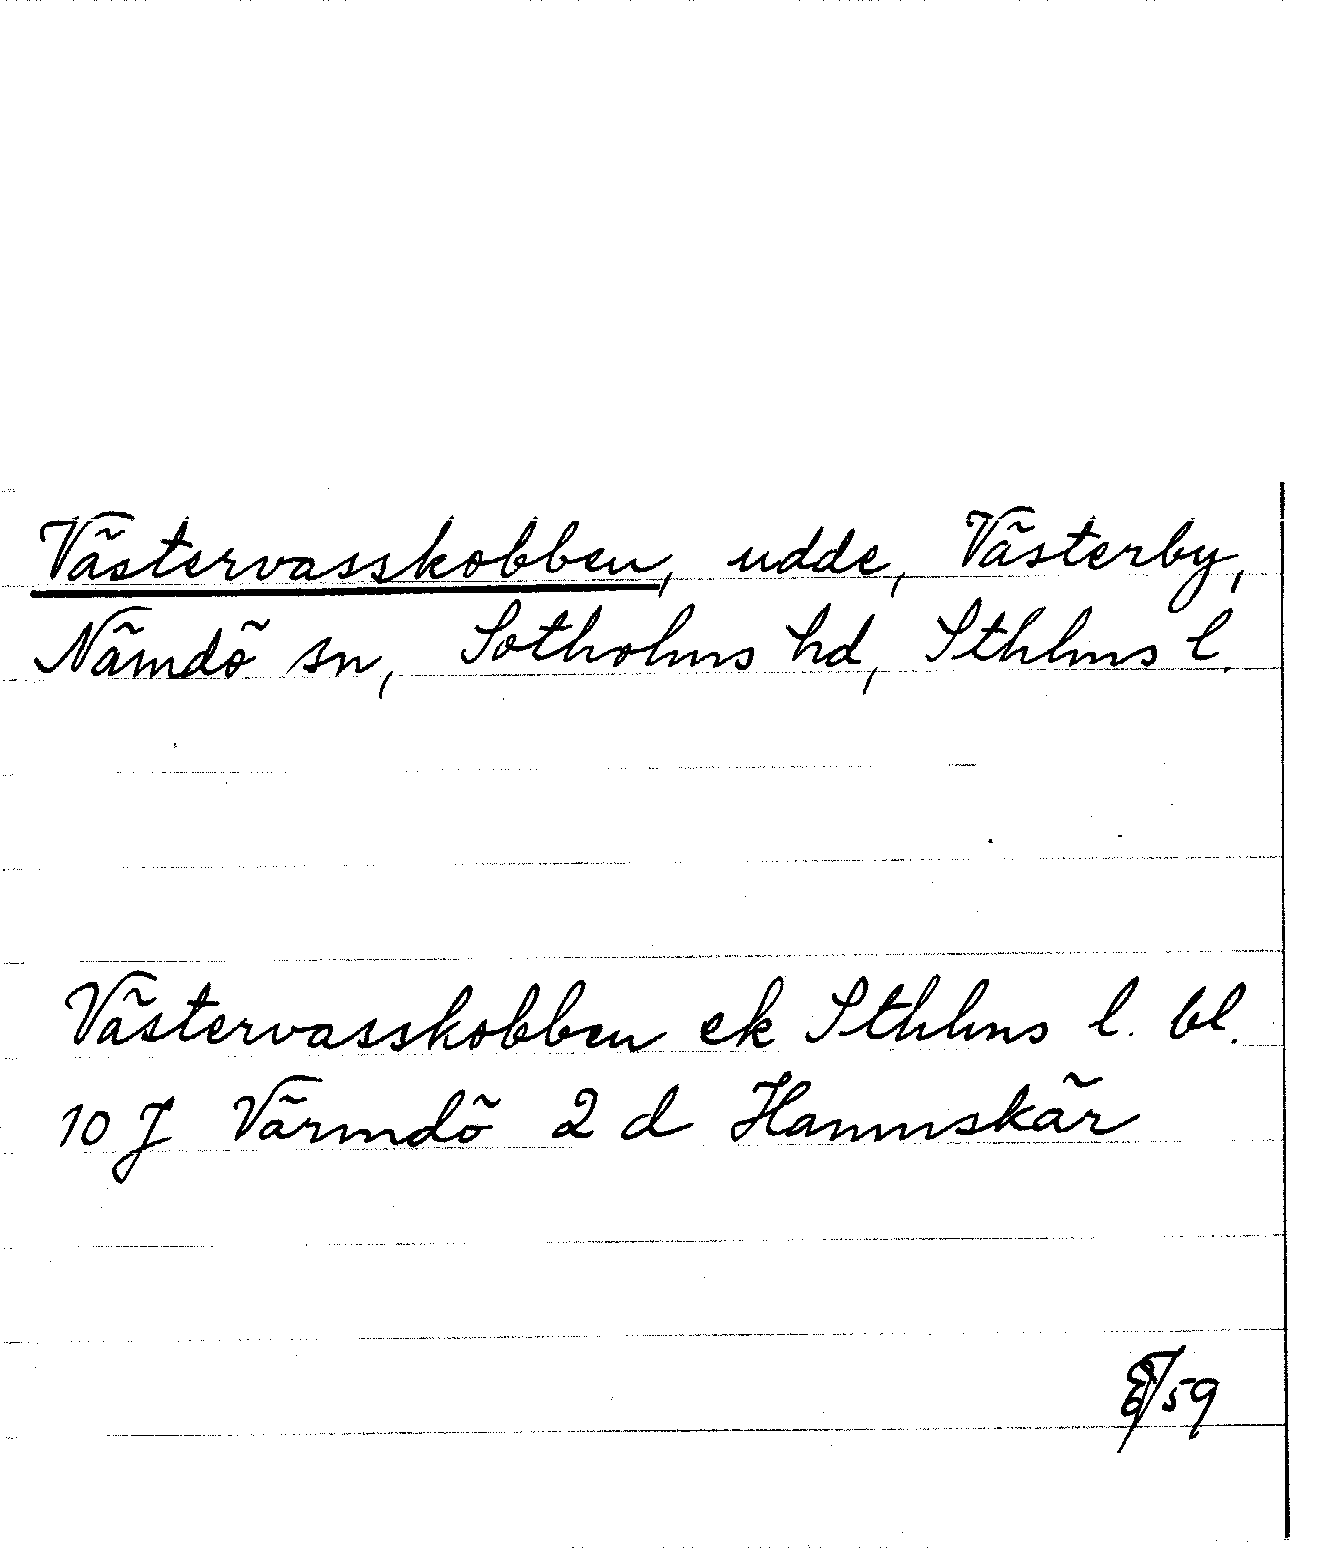 Västervasskobben, udde, Västerby,
Nämdö sn, Sotholms hd, Sthlms l.
Västervasskobben ek Sthlms l. bl.
10 J Värmdö 2 d Hamnskär
/59